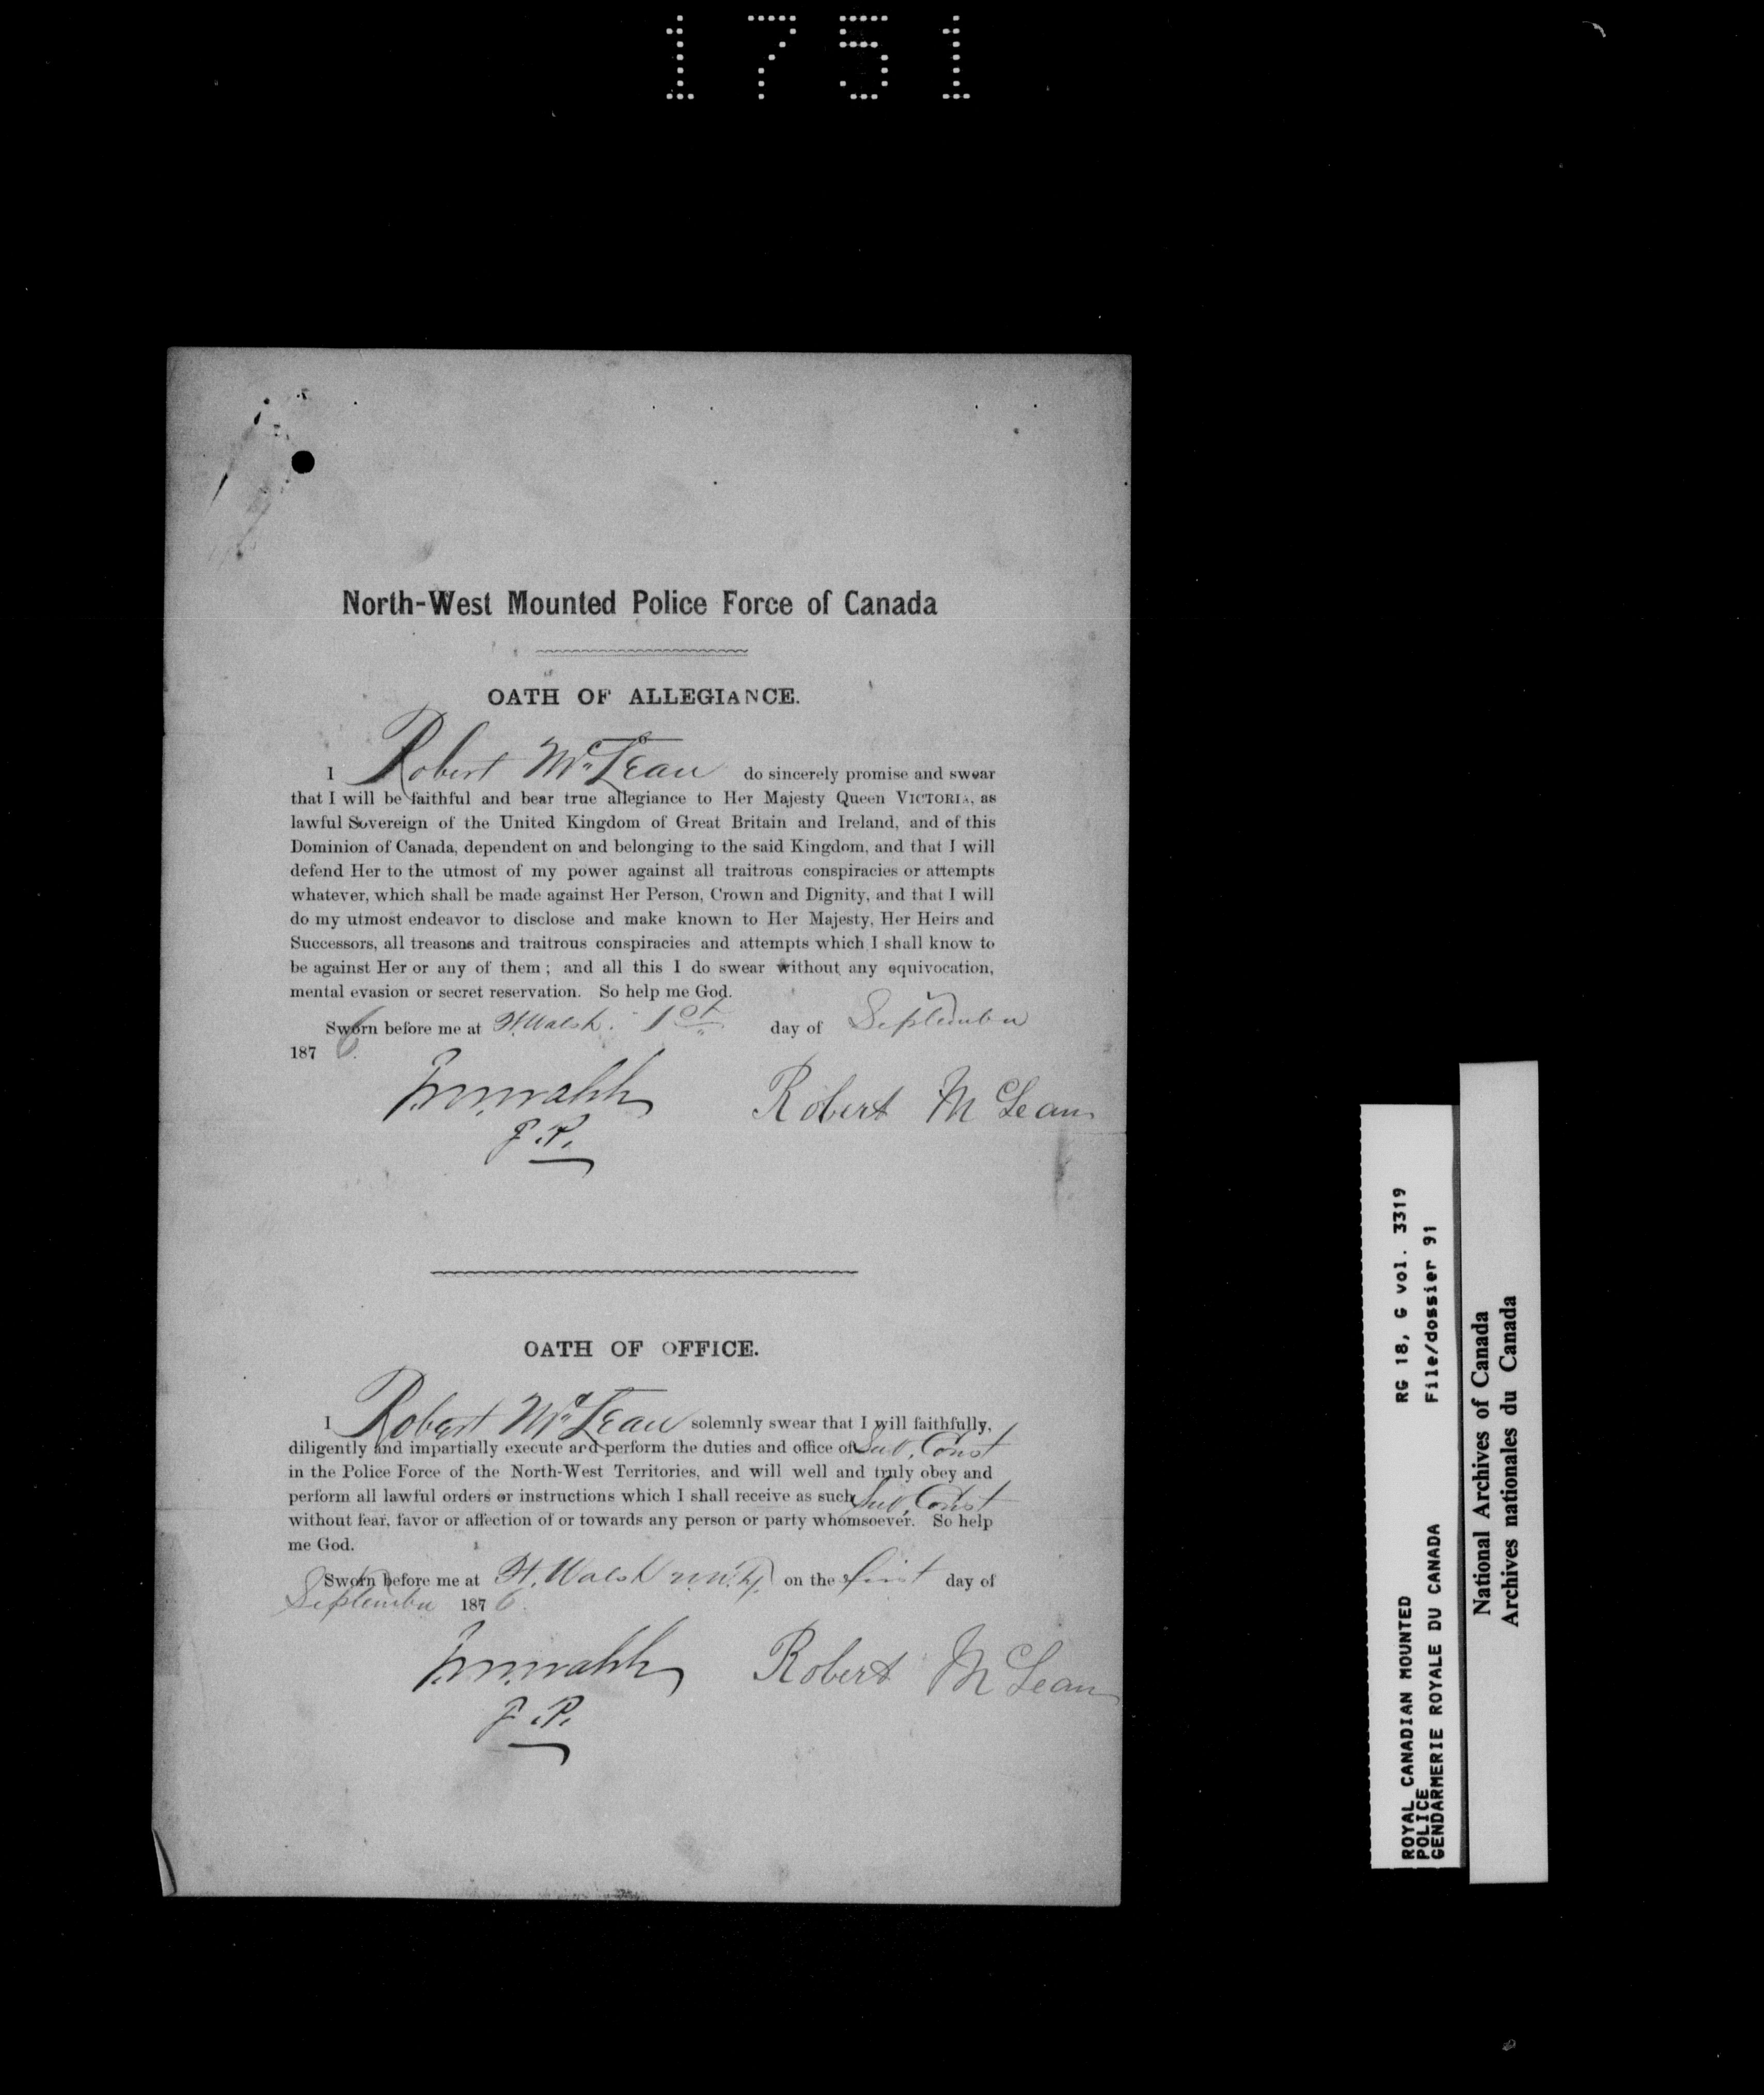 1751
North-West Mounted Police Force of Canada
OATH OF ALLEGIANCE.
I Robert McLean do sincerely promise and swear
that I will be faithful and bear true allegiance to Her Majesty Queen VICTORIA, as
lawful Sovereign of the United Kingdom of Great Britain and Ireland, and of this
Dominion of Canada, dependent on and belonging to the said Kingdom, and that I will
defend Her to the utmost of my power against all traitrous conspiracies or attempts
whatever, which shall be made against Her Person, Crown and Dignity, and that I will
do my utmost endeavor to disclose and make known to Her Majesty, Her Heirs and
Successors, all treasons and traitrous conspiracies and attempts which I shall know to
be against Her or any of them ; and all this I do swear without any equivocation,
mental evasion or secret reservation. So help me God.
Sworn before me at Ft. Walsh. 1st day of September
187 6.
J.M. Walsh Robert McLean
J.P.
OATH OF OFFICE.
I Robert McLean solemnly swear that I will faithfully,
diligently and impartially execute and perform the duties and office of Sub. Const
in the Police Force of the North-West Territories, and will well and truly obey and
perform all lawful orders or instructions which I shall receive as such Sub. Const
without fear, favor or affection of or towards any person or party whomsoever. So help
me God.
Sworn before me at Ft. Walsh on the first day of
September 187 6.
J.M. Walsh Robert McLean
J.P.
ROYAL CANADIAN MOUNTED RG 18, G vol. 3319
POLICE File/dossier 91
GENDARMERIE ROYALE DU CANADA
National Archives of Canada
Archives nationales du Canada